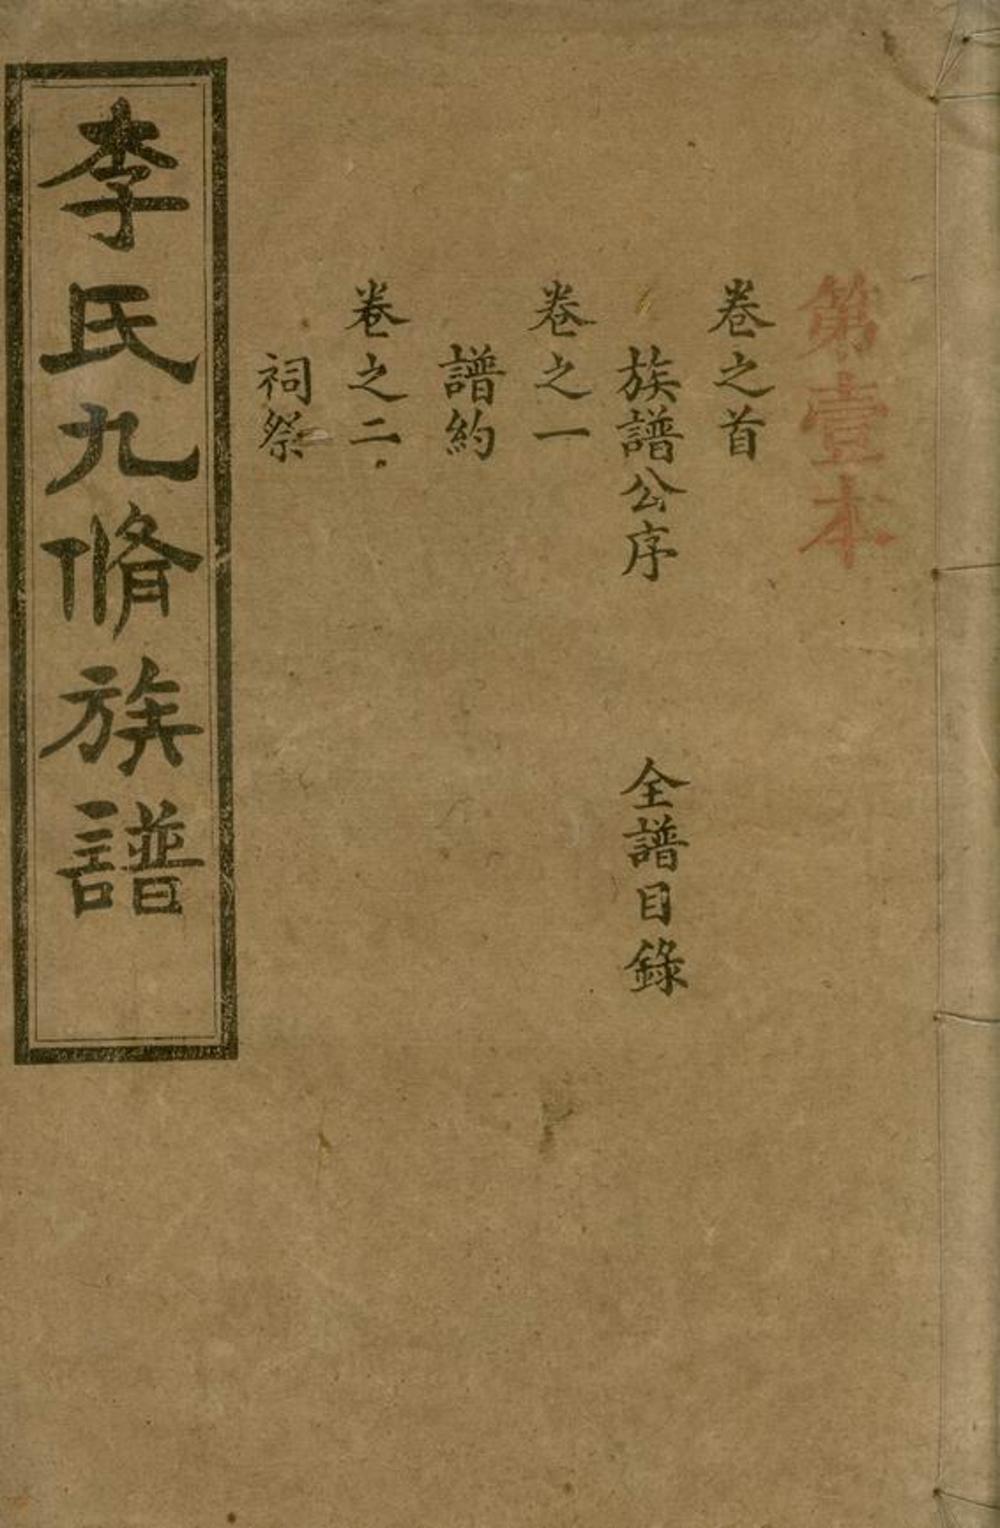 第壹本
卷之首
族譜公序 全譜目錄
卷之一
譜約
卷之二
祠祭
李氏九脩族譜